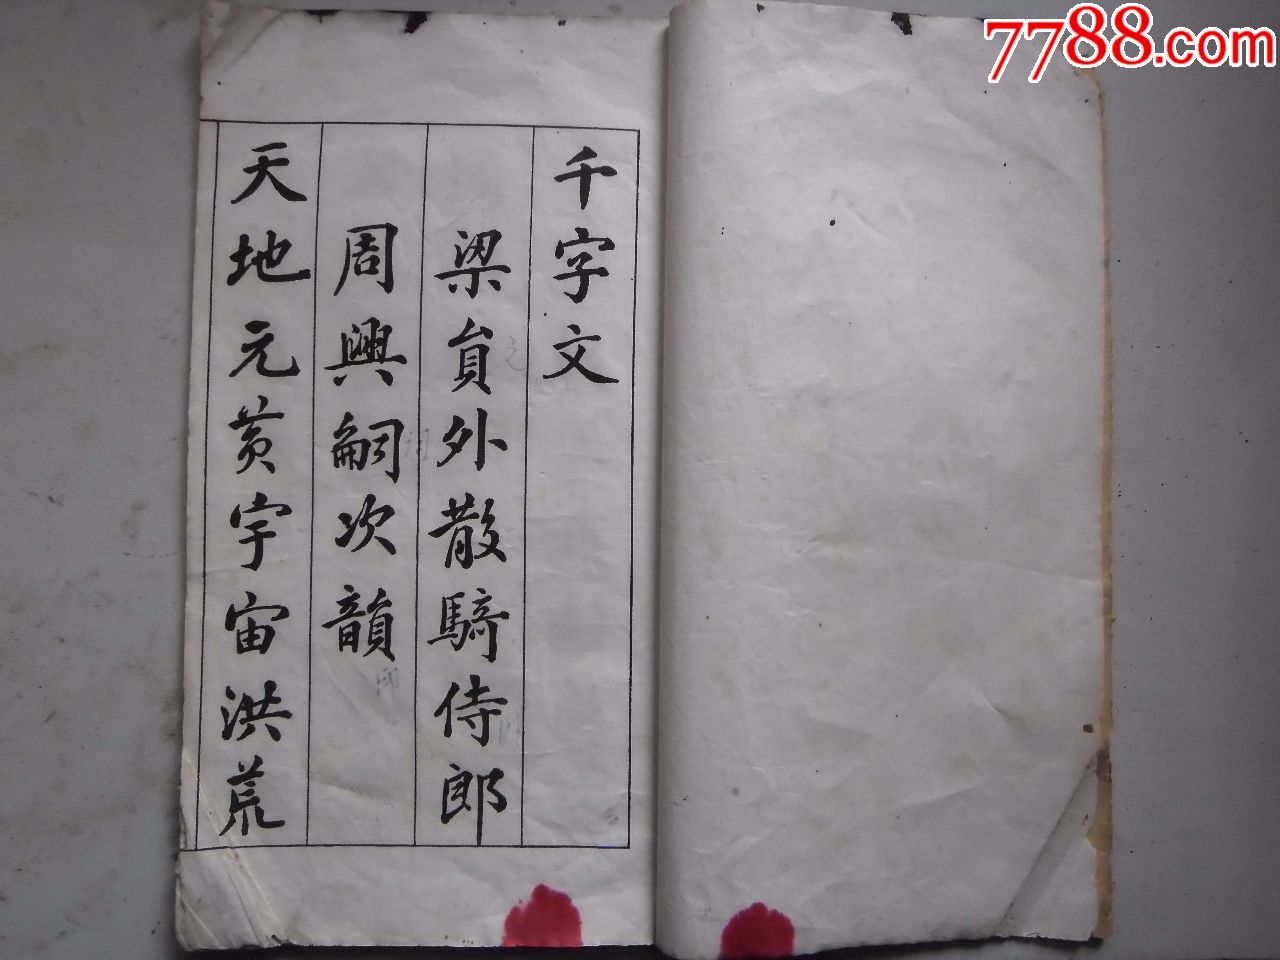 千字文
梁員外散騎侍郎
周興嗣次韻
天地元黃宇宙洪荒
7788.com